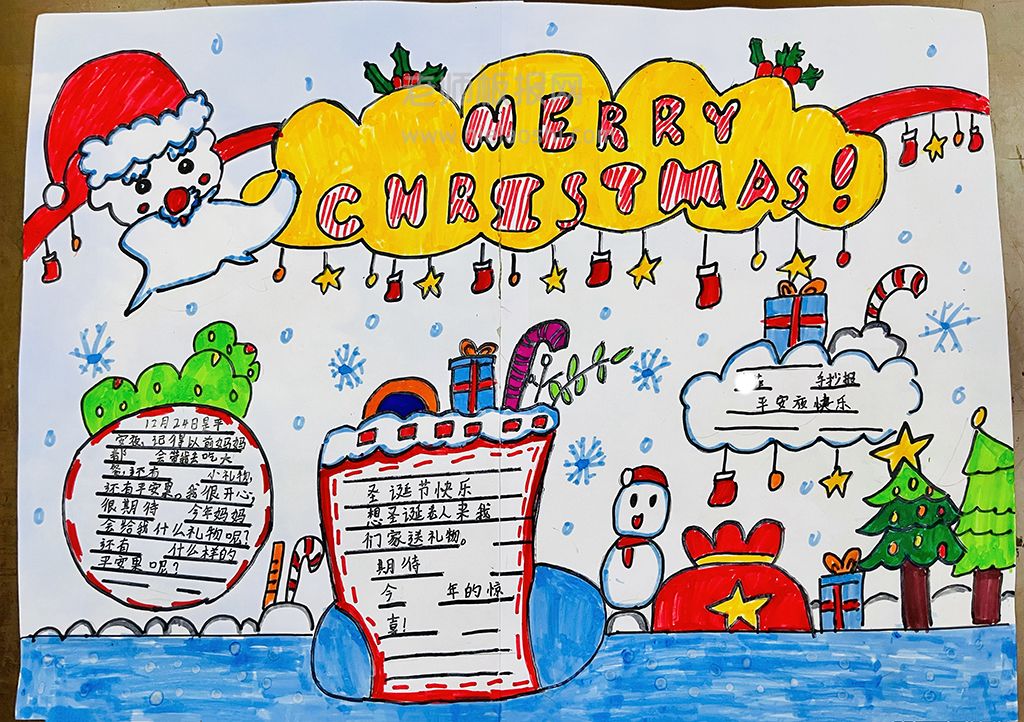 MERRY
CHRISTMAS!
老师板报网
12月24日是平
安夜,记得以前妈妈
都 会带我去吃大
餐,还有 小礼物,
还有平安果。我很开心,
很期待 今年妈妈
会给我什么礼物呢?
还有 什么样的
平安果呢?
圣诞节快乐
想圣诞老人来我
们家送礼物。
期待
今 年的惊
喜!
手抄报
平安夜快乐